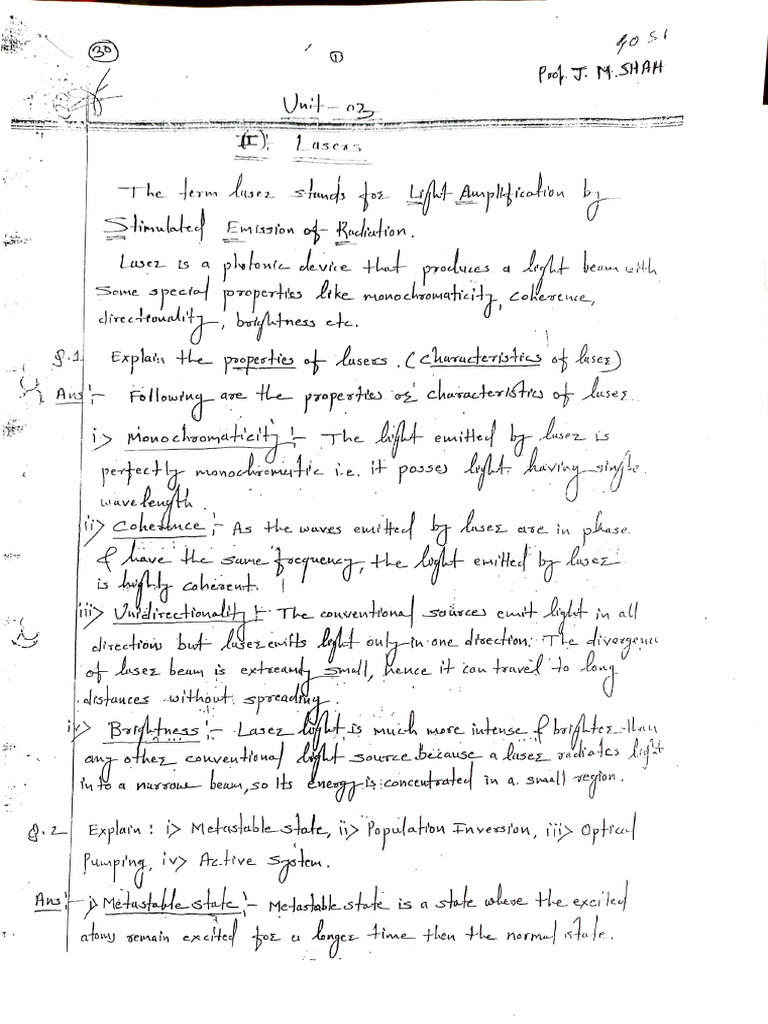 30
1
Prof. J. M. SHAH
Unit - 03
(I): Lasers
The term laser stands for Light Amplification by
Stimulated Emission of Radiation.
Laser is a photonic device that produces a light beam with
some special properties like monochromaticity, coherence,
directionality, brightness etc.
Q.1 Explain the properties of lasers. (characteristics of laser)
Ans:- Following are the properties or characteristics of laser.
i> Monochromaticity:- The light emitted by laser is
perfectly monochromatic i.e. it posses light having single
wavelength.
ii> Coherence:- As the waves emitted by laser are in phase
& have the same frequency, the light emitted by laser
is highly coherent.
iii> Unidirectionality:- The conventional sources emit light in all
directions but laser emits light only in one direction. The divergence
of laser beam is extreamly small, hence it can travel to long
distances without spreading.
iv> Brightness:- Laser light is much more intense & brighter than
any other conventional light source because a laser radiates light
in to a narrow beam, so its energy is concentrated in a small region.
Q.2 Explain: i> Metastable state, ii> Population Inversion, iii> Optical
Pumping, iv> Active System.
Ans:- i> Metastable state:- Metastable state is a state where the excited
atoms remain excited for a longer time then the normal state.